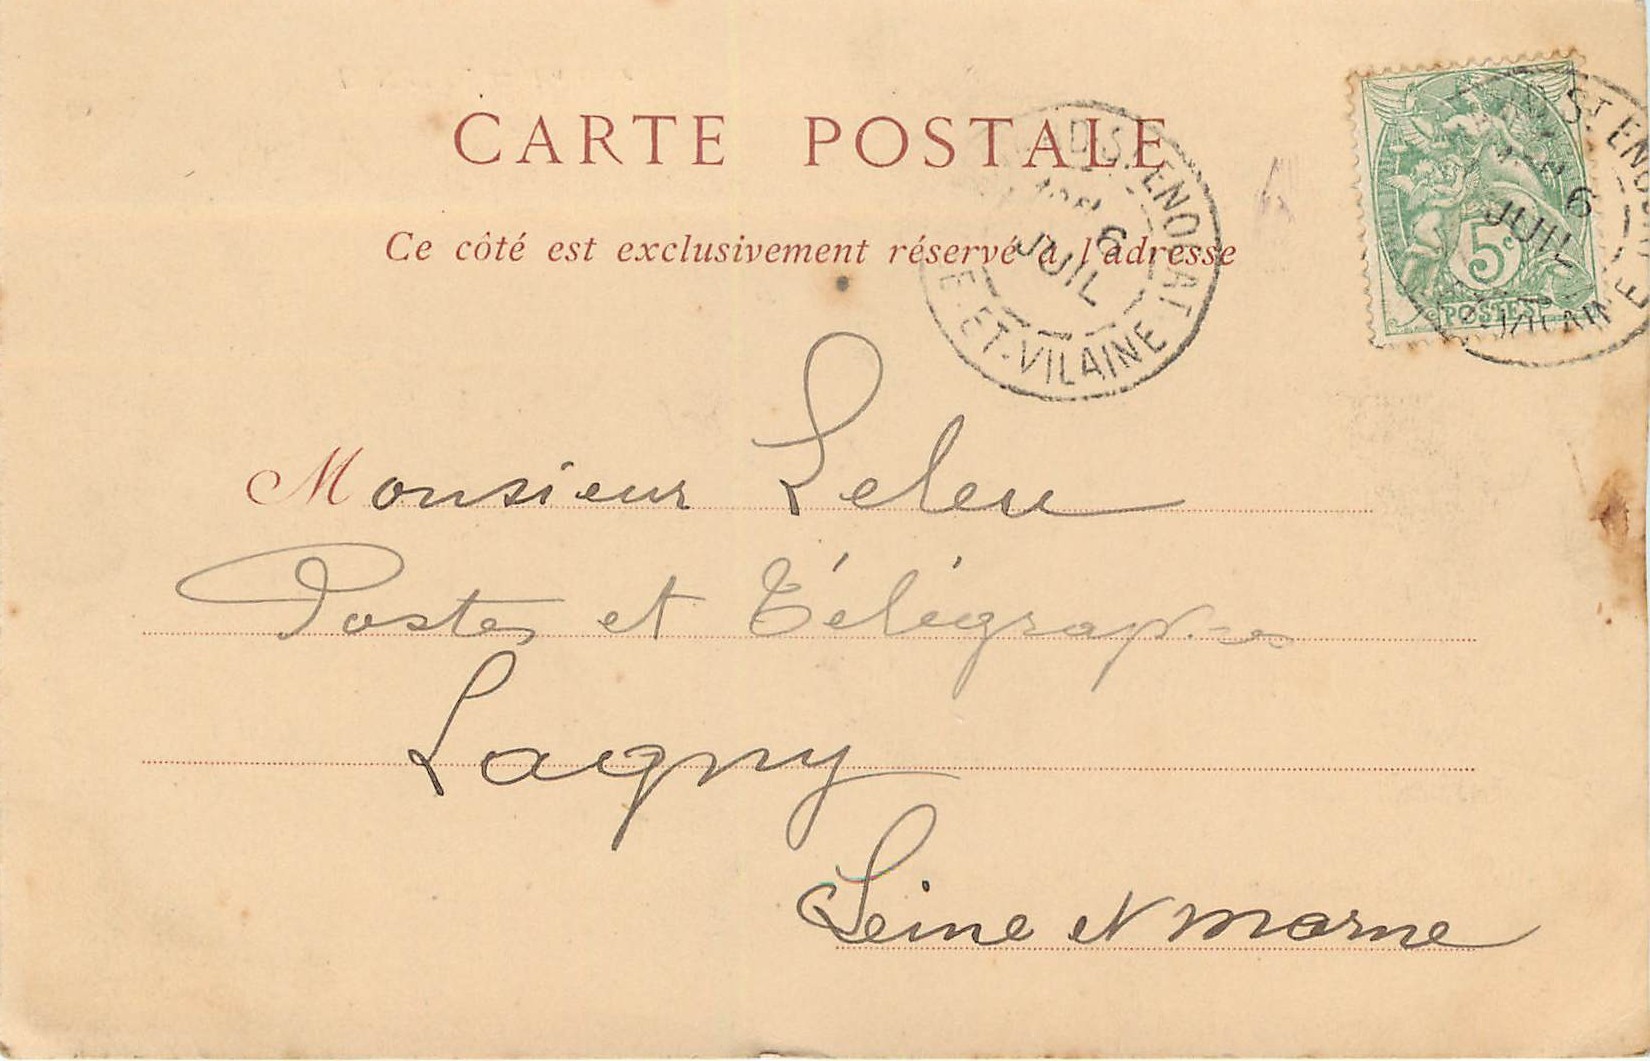 CARTE POSTALE
Ce côté est exclusivement réservé à l'adresse
ENOGAT
6
JUIL
ET-VILAINE
ST ENOGAT
6
JUIL
5c
POSTES
Monsieur Leleu
Postes et Télégraphes
Lagny
Seine et Marne